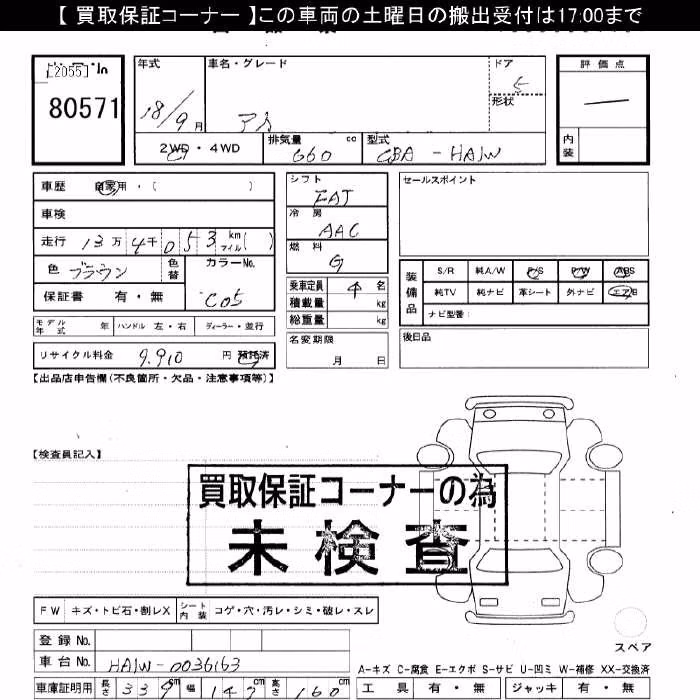 【 買取保証コーナー 】この車両の土曜日の搬出受付は17:00まで
[2055]
80571
年式
車名・グレード
ドア
5
形状
評価点
—
内装
18/9 月
アイ
2WD・4WD
排気量
660 cc
型式
CBA - HA1W
車歴 自家用・( )
車検
走行 13万 4千 0 5 3 km マイル ( )
色 ブラウン
色替
カラーNo.
C05
保証書 有・無
モデル年式 年
ハンドル 左・右
ディーラー・並行
リサイクル料金 9,910 円 預託済
シフト
FAT
冷房
AAC
燃料
G
乗車定員 4 名
積載量 kg
総重量 kg
名変期限
月 日
セールスポイント
装備品
S/R 純A/W P/S P/W ABS
純TV 純ナビ 革シート 外ナビ エアB
ナビ型番:
後日品
【出品店申告欄(不良箇所・欠品・注意事項等)】
【検査員記入】
買取保証コーナーの為
未検査
FW キズ・トビ石・割レX
シート内装 コゲ・穴・汚レ・シミ・破レ・スレ
スペア
登録No.
車台No. HA1W-0036163
A-キズ C-腐食 E-エクボ S-サビ U-凹ミ W-補修 XX-交換済
車庫証明用 長さ 339 cm 幅 147 cm 高さ 160 cm
工具 有・無 ジャッキ 有・無